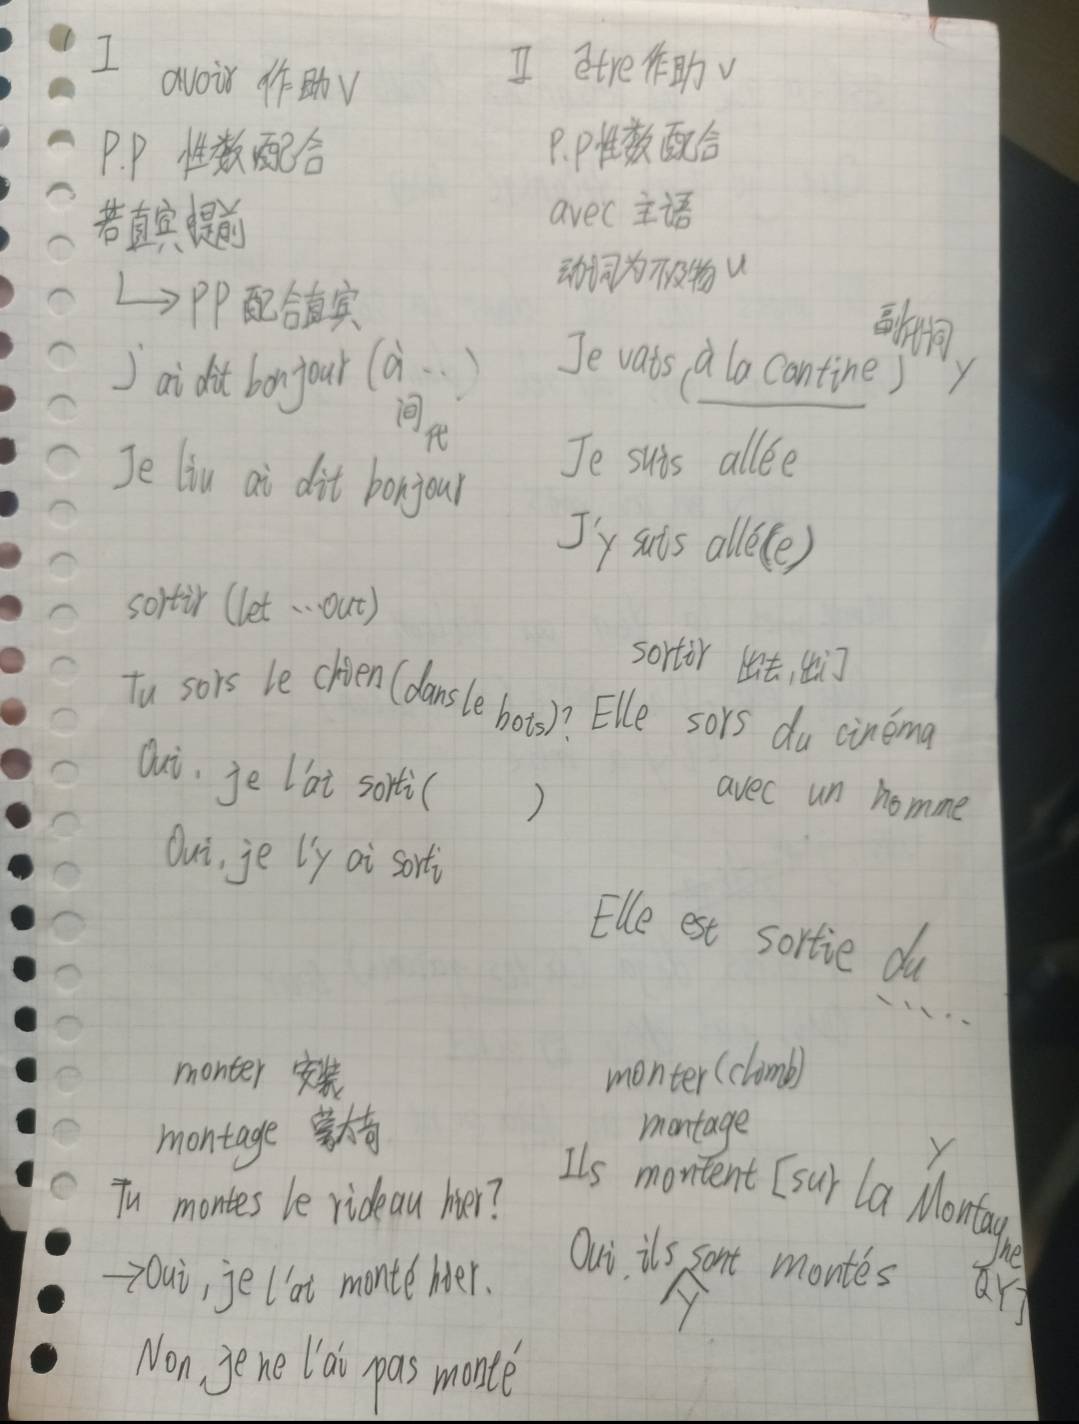 I
avoir 作助V
P.P 性数配合
若直宾提前
↳PP配合直宾
J'ai dit bonjour (à ...)
间代
Je liu ai dit bonjour
sortir (let ...out)
Tu sors le chien (dans le bois)?
Oui, je l'ai sorti ( )
Oui, je l'y ai sorti
monter 安装
montage 蒙太奇
Tu montes le rideau hier?
→Oui, je l'ai monté hier.
Non, je ne l'ai pas monté
II être 作助V
P.P性数配合
avec 主语
动词为不及物V
副代词
Je vais (à la Cantine) Y
Je suis allée
J'y suis allé(e)
sortir 出去,出门
Elle sors du cinéma
avec un homme
Elle est sortie du
.....
monter (climb)
montage
Y
Ils montent [sur la Montagne
Oui, ils sont montés
Y